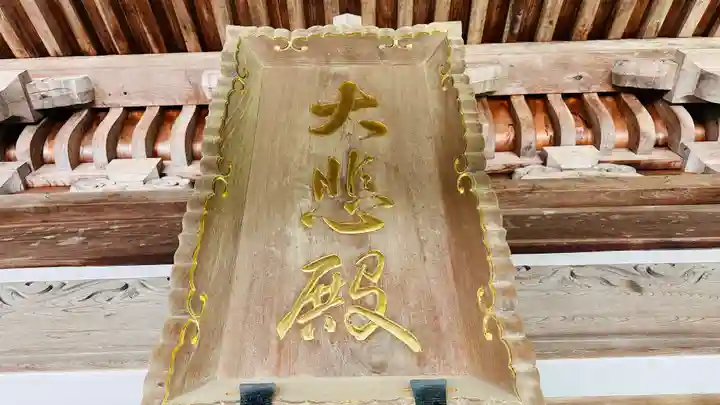 大悲殿